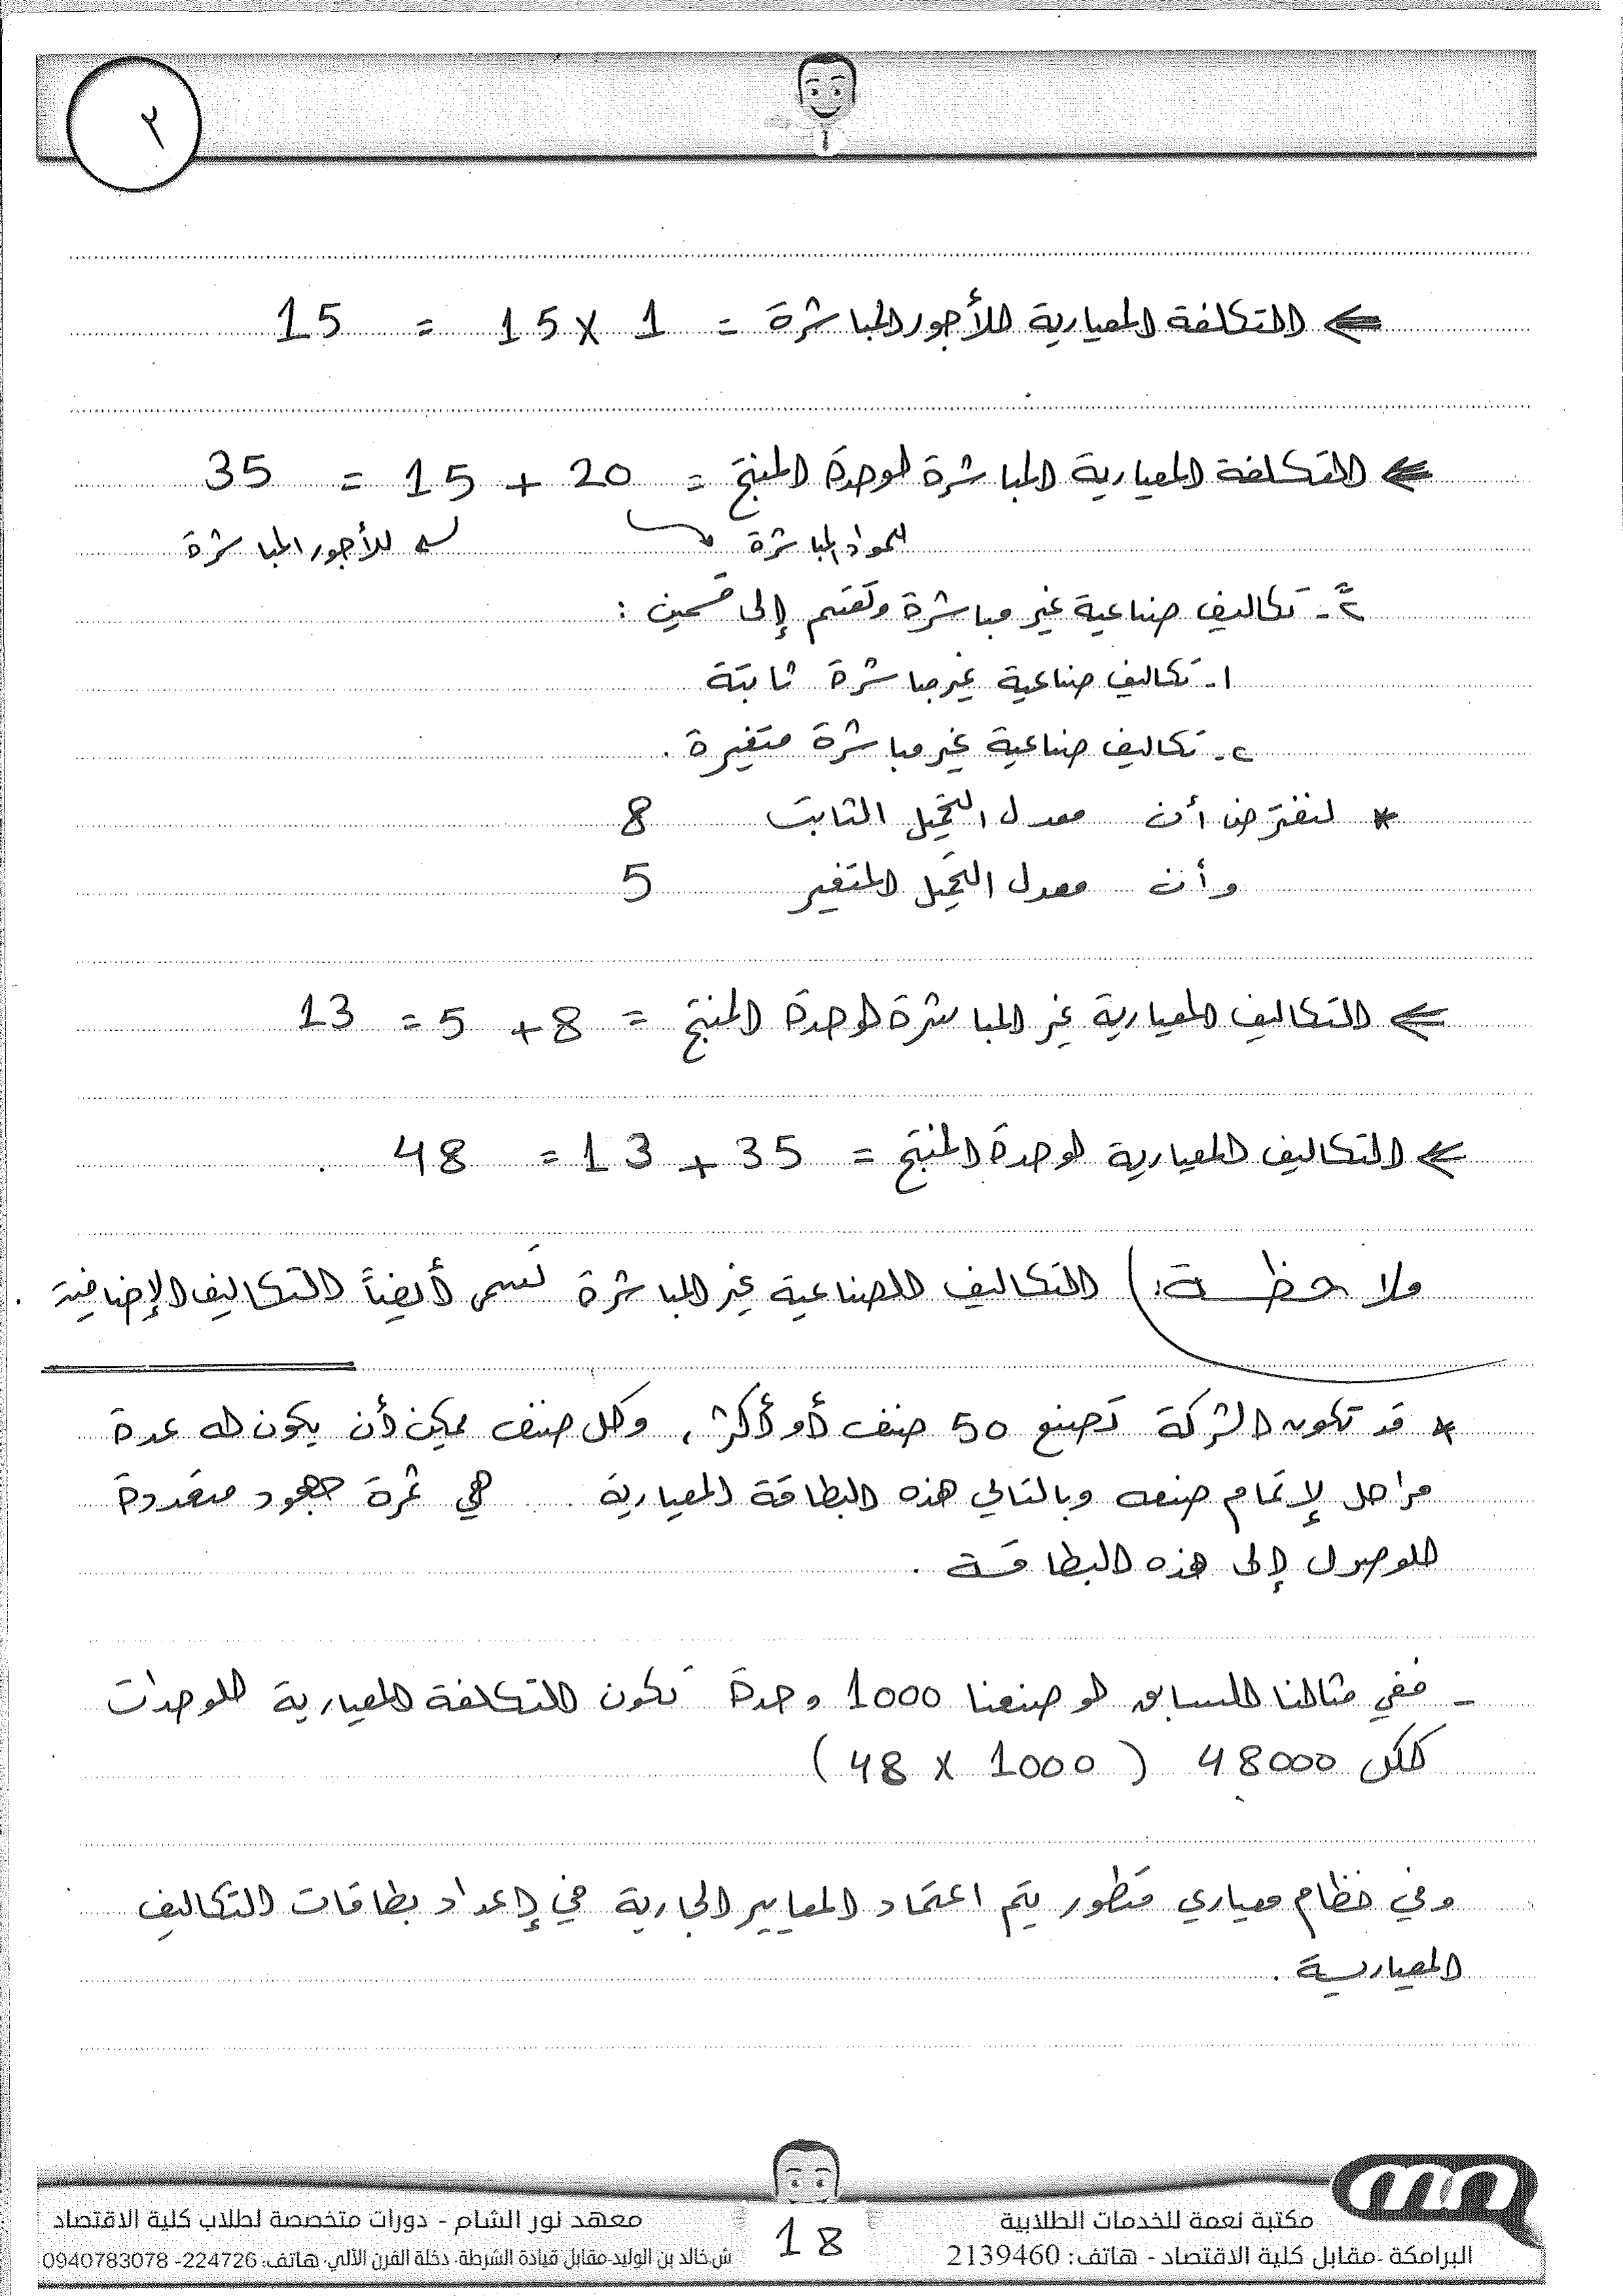 ٢
⇐ التكلفة المعيارية للأجور المباشرة = 1 × 15 = 15
⇐ التكلفة المعيارية المباشرة لوحدة المنتج = 20 + 15 = 35
للمواد المباشرة للأجور المباشرة
٢ً- تكاليف صناعية غير مباشرة وتقسم إلى قسمين :
١- تكاليف صناعية غير مباشرة ثابتة
٢- تكاليف صناعية غير مباشرة متغيرة .
* لنفترض أن معدل التحميل الثابت 8
وأن معدل التحميل المتغير 5
⇐ التكاليف المعيارية غير المباشرة لوحدة المنتج = 8 + 5 = 13
⇐ التكاليف المعيارية لوحدة المنتج = 35 + 13 = 48 .
ملاحظة: ) التكاليف الصناعية غير المباشرة تسمى أيضاً التكاليف الإضافية .
* قد تكون الشركة تصنع 50 صنف أو أكثر ، وكل صنف ممكن أن يكون له عدة
مراحل لإتمام صنعه وبالتالي هذه البطاقة المعيارية هي ثمرة جهود متعددة
للوصول إلى هذه البطاقة .
- ففي مثالنا السابق لو صنعنا 1000 وحدة تكون التكلفة المعيارية للوحدات
ككل 48000 ( 1000 × 48 )
وفي نظام معياري متطور يتم اعتماد المعايير الجارية في إعداد بطاقات التكاليف
المعيارية .
مكتبة نعمة للخدمات الطلابية
البرامكة -مقابل كلية الاقتصاد - هاتف: 2139460
18
معهد نور الشام - دورات متخصصة لطلاب كلية الاقتصاد
ش.خالد بن الوليد-مقابل قيادة الشرطة- دخلة الفرن الآلي- هاتف: 224726- 0940783078